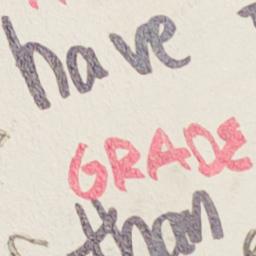 have
GRADE
than